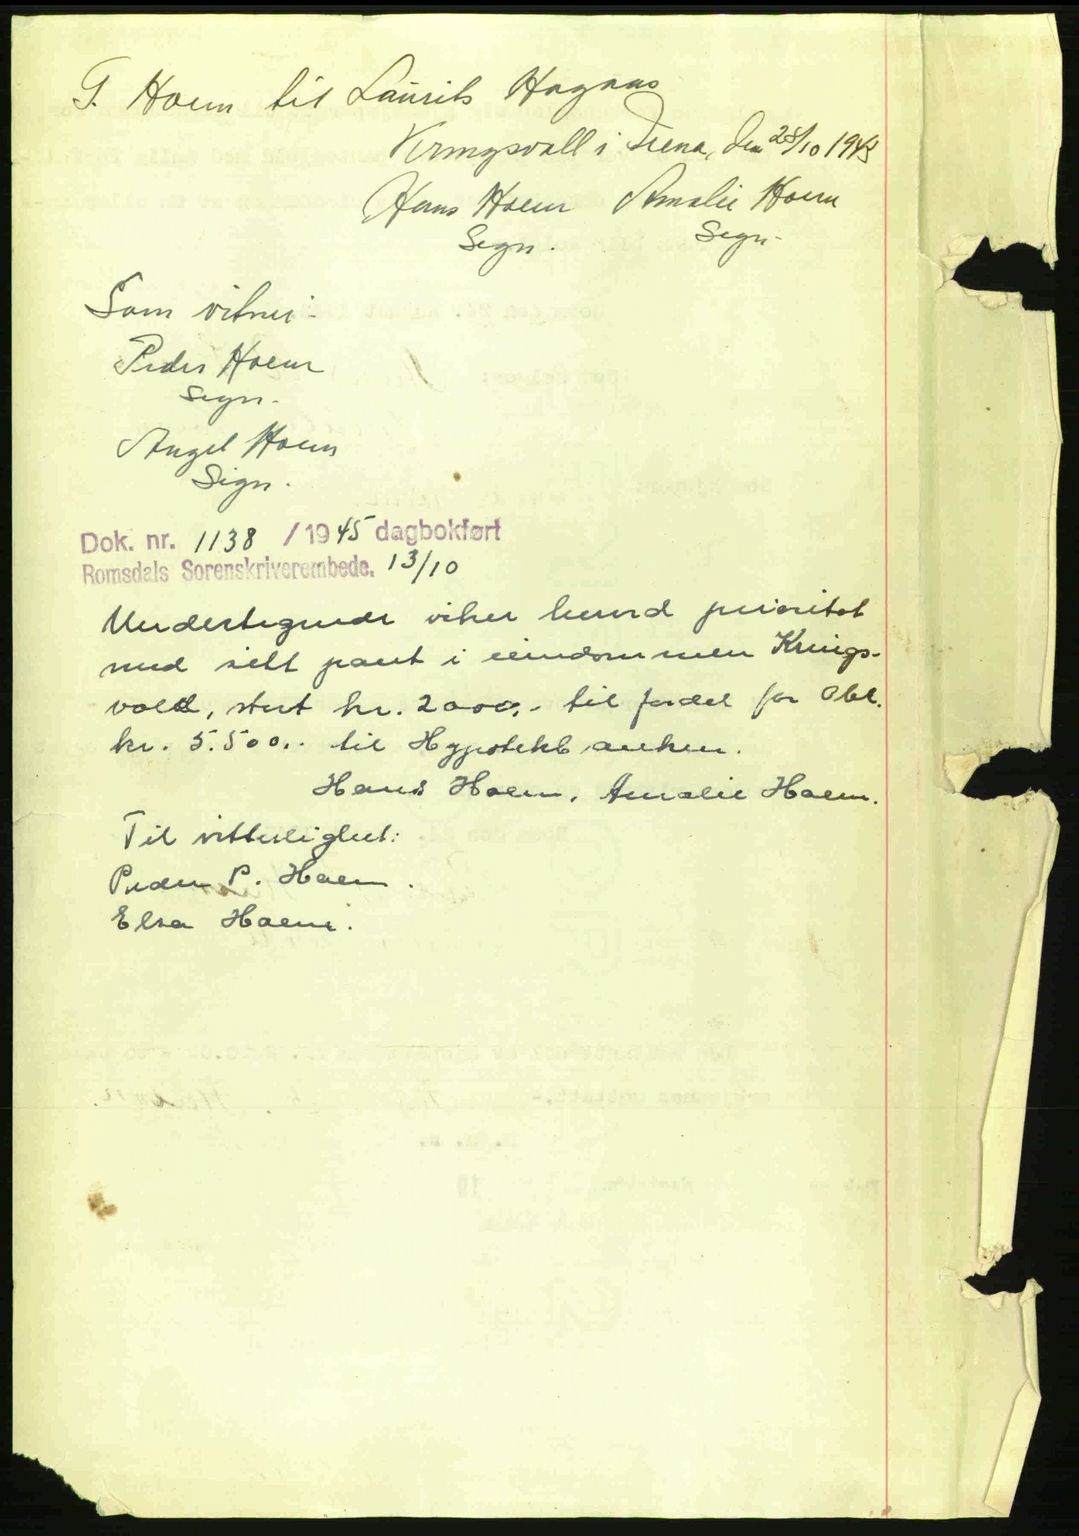 T. Hoem til Laurits Hagnas
Kringsvoll i Fræna, den 28/10 1943
Hans Hoem Amalie Hoem
Sign. Sign.
Som vitne:
Peder Hoem
Sign.
Angel Hoem
Sign.
Dok. nr. 1138 / 1945 dagbokført
Romsdals Sorenskriverembede. 13/10
Undertegnede viker herved prioritet
med sitt pant i eiendommen Krings-
vold, stort kr. 2000,- til fordel for Obl.
kr. 5.500,- til Hypotekbanken.
Hans Hoem, Amalie Hoem.
Til vitterlighet:
Peder P. Hoem.
Elsa Hoem.